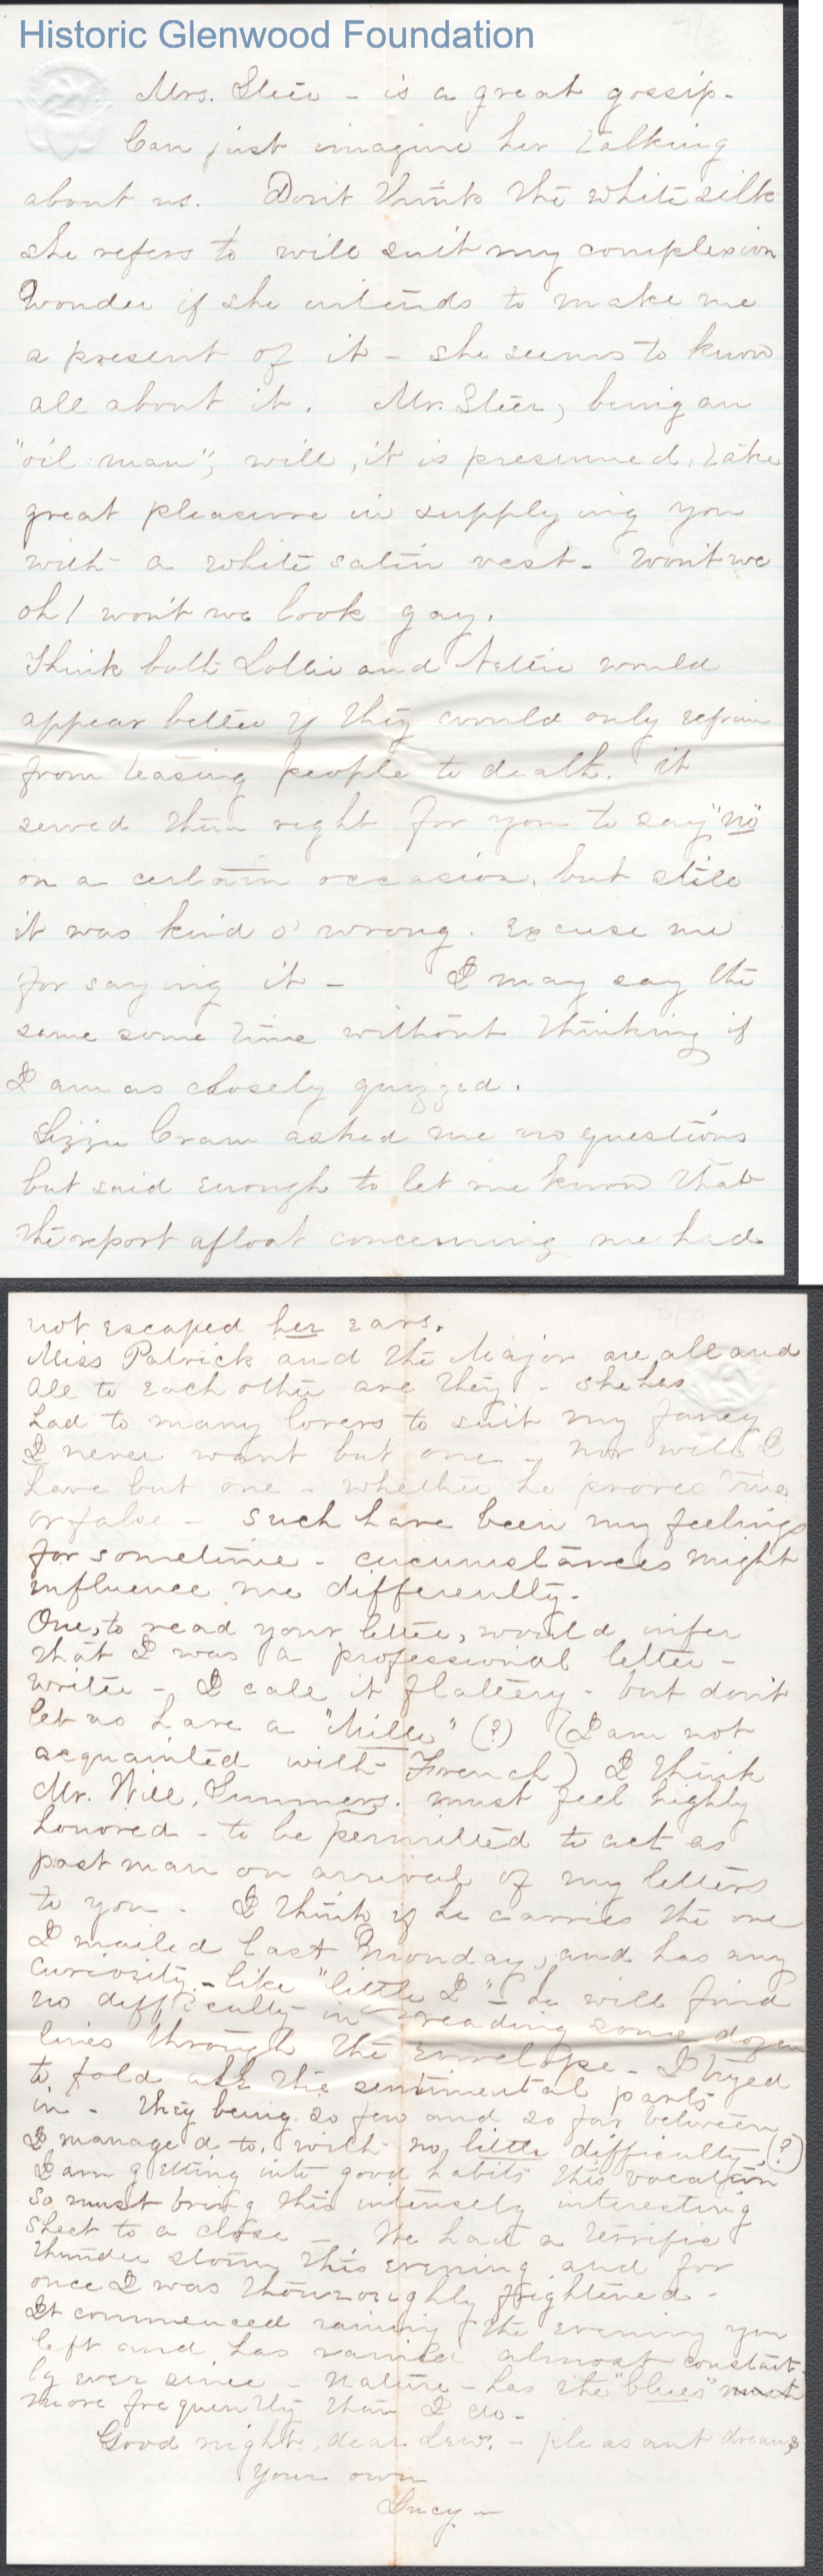 Historic Glenwood Foundation
Mrs. Steer - is a great gossip -
Can just imagine her talking
about us. Don't think the white silk
she refers to will suit my complexion
Wonder if she intends to make me
a present of it - she seems to know
all about it. Mr. Steer, being an
"oil man", will, it is presumed, take
great pleasure in supplying you
with a white satin vest - won't we
oh! won't we look gay.
Think both Lollie and Nettie would
appear better if they would only refrain
from teasing people to death. it
served them right for you to say "no"
on a certain occasion, but still
it was kind o' wrong. Excuse me
for saying it - I may say the
same some time without thinking if
I am as closely quizzed.
Lizzie Cram asked me no questions
but said enough to let me know that
the report afloat concerning me had
not escaped her ears.
Miss Patrick and the Major are all and
all to each other are they - she has
had to many lovers to suit my fancy
I never want but one - nor will I
have but one - whether he proves true
or false - such have been my feelings
for sometime - circumstances might
influence me differently.
One, to read your letter, would infer
that I was a professional letter -
writer - I call it flattery - but don't
let us have a "Mille" (?) (I am not
acquainted with French) I think
Mr. Will. Summers. must feel highly
honored - to be permitted to act as
post man on arrival of my letters
to you - I think if he carries the one
I mailed last Monday, and has any
curiosity - like "little I" - he will find
no difficulty in reading some dozen
lines through the envelope - I tryed
to fold all the sentimental parts
in - they being so few and so far between
I managed to, with no little difficulty, (?)
I am getting into good habits this vacation
so must bring this intensely interesting
sheet to a close - We had a terrific
thunder storm this evening and for
once I was thouroughly frightened -
It commenced raining the evening you
left and has rained almost constant-
ly ever since - Nature - has the "blues" much
more frequently than I do -
Good night, dear Lew. - pleasant dreams
Your own
Lucy -